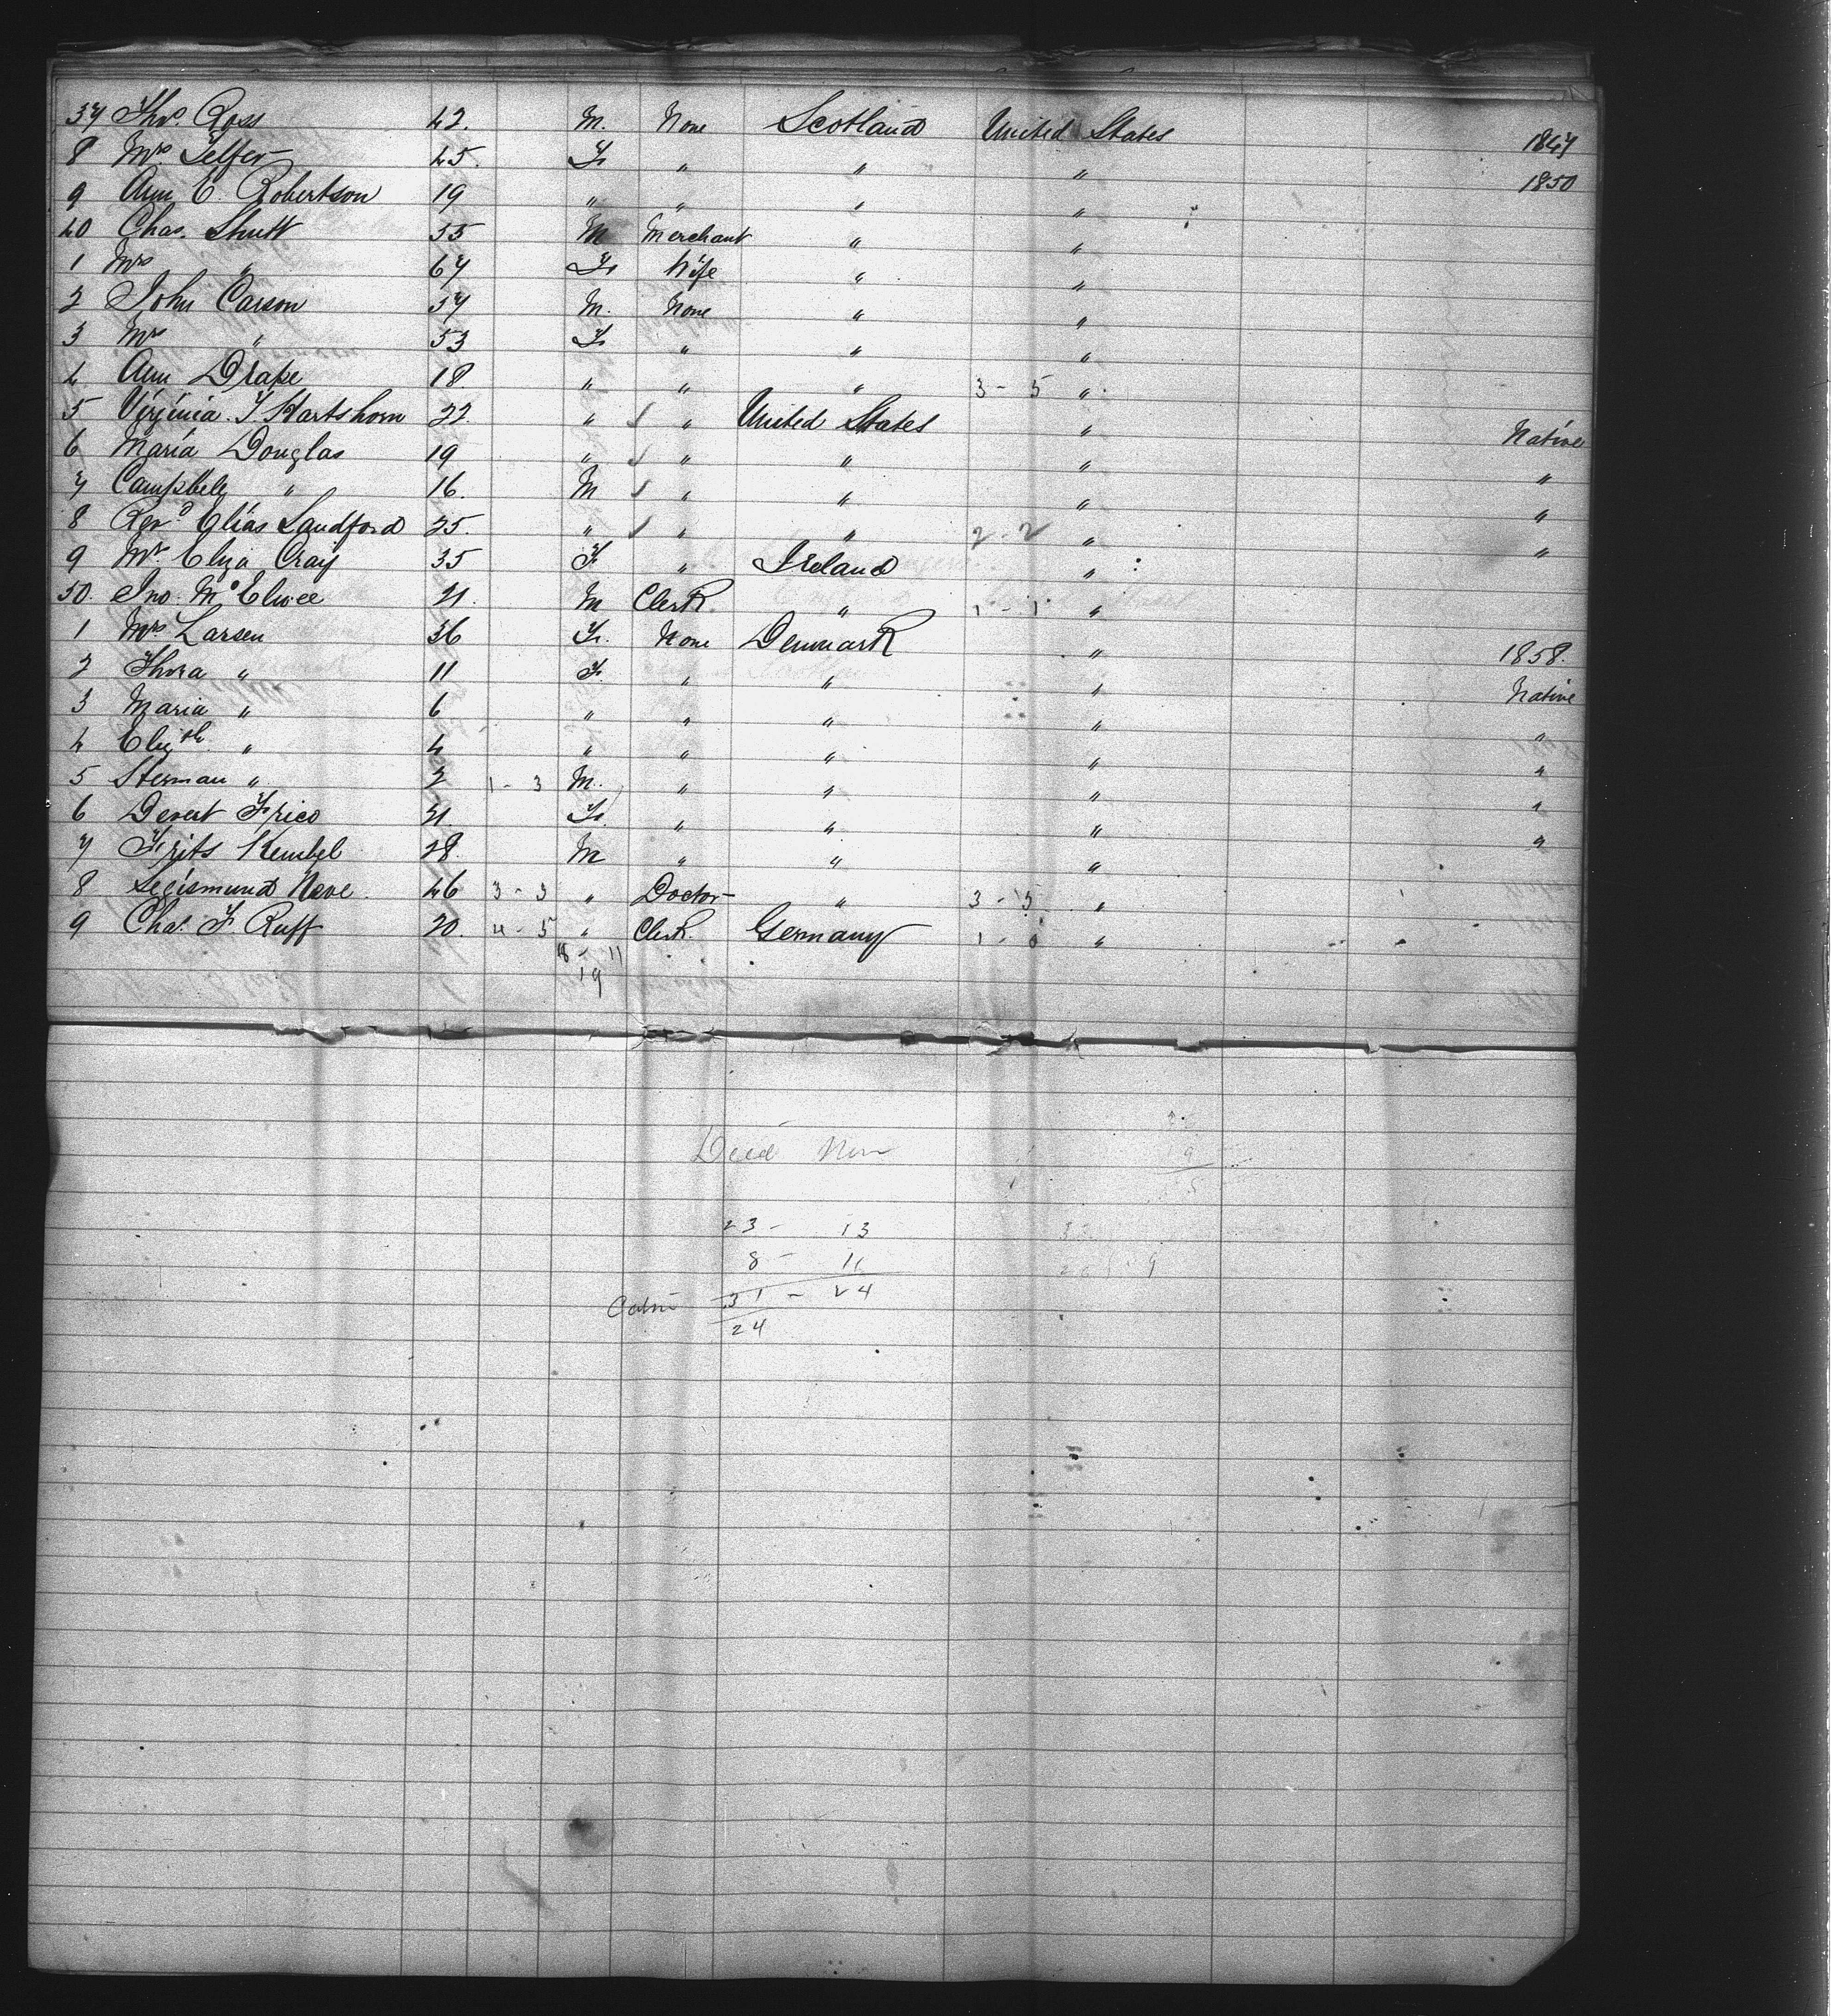 37 Thos. Ross 42. M. None Scotland United States 1847
8 Mrs Telfer 45. F. " " " 1850
9 Ann C. Robertson 19 " " " "
40 Chas. Shutt 55 M Merchant " "
1 Mrs " 67 F. Wife " "
2 John Carson 57 M. None " "
3 Mrs " 53 F. " " "
4 Ann Drake 18. " " " 3 - 5 "
5 Virginia T Hartshorn 22. " " United States " Native
6 Maria Douglas 19 " " " " "
7 Campbell " 16. M " " " "
8 Revd Elias Sandford 25. " " " 2 - 2 " "
9 Mrs Eliza Craig 35 F " Ireland "
50. Jno. McElwee 21. M Clerk. " 1 - 1 "
1 Mrs Larsen 36 F. None Denmark " 1858.
2 Thora " 11 F. " " " Native
3 Maria " 6 " " " " "
4 Elizth " 4 " " " " "
5 Herman " 2 1 - 3 M. " " " "
6 Devert Frico 21. F. " " " "
7 Frits Kembel 28. M " " "
8 Segismund Neve. 46 3 - 3 " Doctor " 3 - 5 "
9 Chas. F Ruff 20. 4 - 5 " Clerk. Germany 1 - 0 "
8 - 11
19
Died Non
23 - 13
8 - 11
Cabin 31 - 24
24